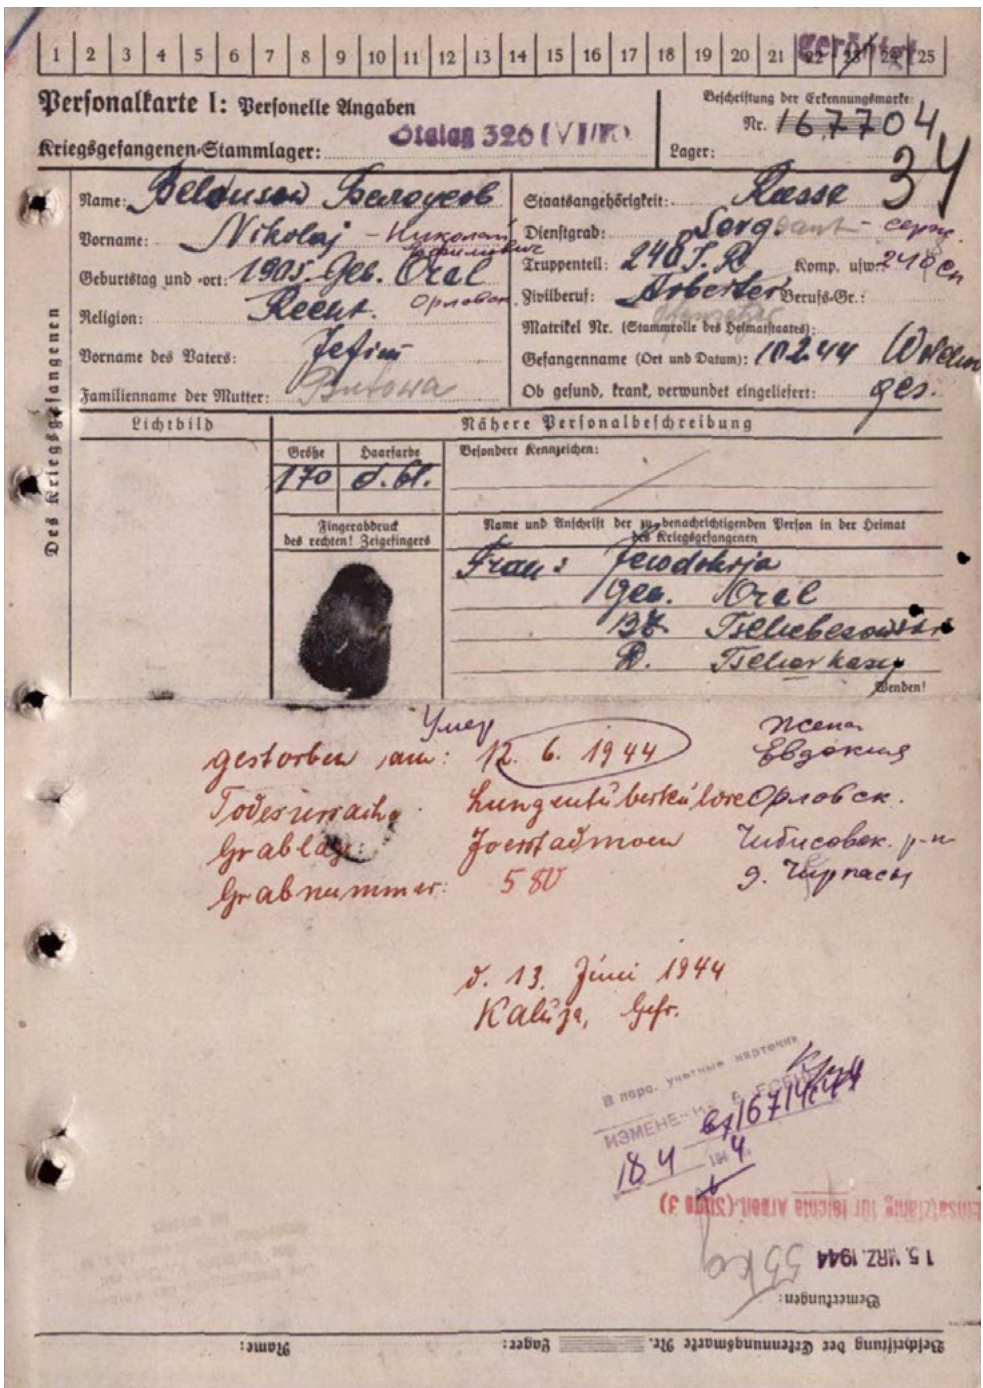 1 2 3 4 5 6 7 8 9 10 11 12 13 14 15 16 17 18 19 20 21 22 23 24 25
geröntgt
Personalkarte I: Personelle Angaben
Beschriftung der Erkennungsmarke:
Nr. 167704
Kriegsgefangenen-Stammlager: Stalag 326 (VI/K)
Lager:
34
Des Kriegsgefangenen
Name: Belousow Белоусов
Vorname: Nikolaj - Николай
Ефимович
Geburtstag und -ort: 1905. Geb. Orel
Орловск.
Religion:
Vorname des Vaters: Jefim
Familienname der Mutter: Butowa
Staatsangehörigkeit: Russe
Dienstgrad: Sergeant - серж.
Truppenteil: 240 J.R. Komp. usw.: 240 сп
Zivilberuf: Arbeiter Berufs-Gr.:
Matrikel Nr. (Stammrolle des Heimatstaates):
Gefangenname (Ort und Datum): 10.2.44
Ob gesund, krank, verwundet eingeliefert: ges.
Lichtbild
Nähere Personalbeschreibung
Größe Haarfarbe Besondere Kennzeichen:
170 d. bl.
Fingerabdruck
des rechten! Zeigefingers
Name und Anschrift der zu benachrichtigenden Person in der Heimat
des Kriegsgefangenen
Frau: Jewdokija
Geb. Orel
Tscherkasy
Wenden!
Умер
gestorben am: 12. 6. 1944
Todesursache: Lungentuberkulose
Grablage:
Grabnummer: 580
Жена
Евдокия
Орловск.
Чибисовск. р-н
д.
d. 13. Juni 1944
Kaluza, Gefr.
В перс. учетные карточки
18 4
Einsatzfähig für leichte Arbeit (Stufe 3)
15. MRZ. 1944
55 kg
Bemerkungen:
Beschriftung der Erkennungsmarke Nr. Lager: Name: